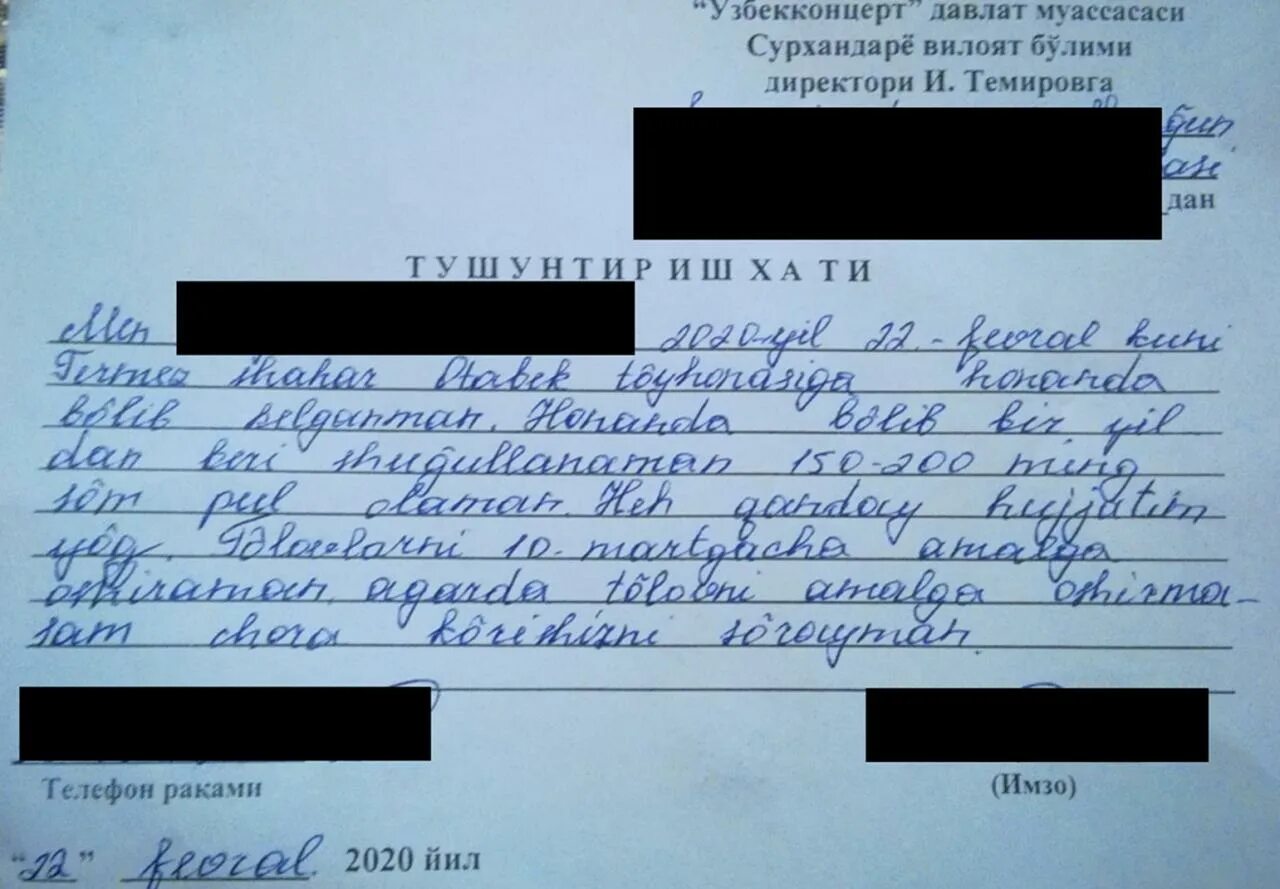 “Узбекконцерт” давлат муассасаси
Сурхандарё вилоят бўлими
директори И. Темировга
дан
ТУШУНТИРИШ ХАТИ
Men 2020-yil 22.-fevral kuni
Termez shahar Otabek tôyhonasiga honanda
bôlib kelganman. Honanda bôlib bir yil
dan beri shuĝullanaman 150-200 ming
sôm pul olaman. Heh qanday hujjatim
yôq. Tôlovlarni 10. martgacha amalga
oshiraman. agarda tôlovni amalga oshirma-
sam chora kôrishizni sôrayman.
Телефон раками
(Имзо)
“22” fevral. 2020 йил